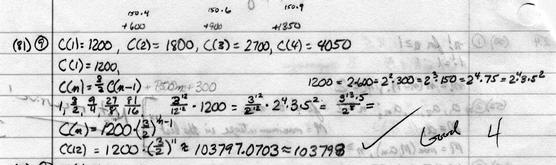 150.4 150.6 150.9
+600 +900 +1350
(81) (9) C(1)=1200, C(2)=1800, C(3)=2700, C(4)=4050
C(1)=1200,
C(n)=3/2 C(n-1) +300 1200=2·600=2²·300=2³·150=2⁴·75=2⁴·3·5²
1, 3/2, 9/4, 27/8, 81/16 3¹²/2¹² · 1200 = 3¹²/2¹² · 2⁴·3·5² = 3¹³·5²/2⁸ =
C(n)=1200·(3/2)ⁿ⁻¹
C(12)=1200·(3/2)¹¹ ≈ 103797.0703≈103798 ✓ Good 4